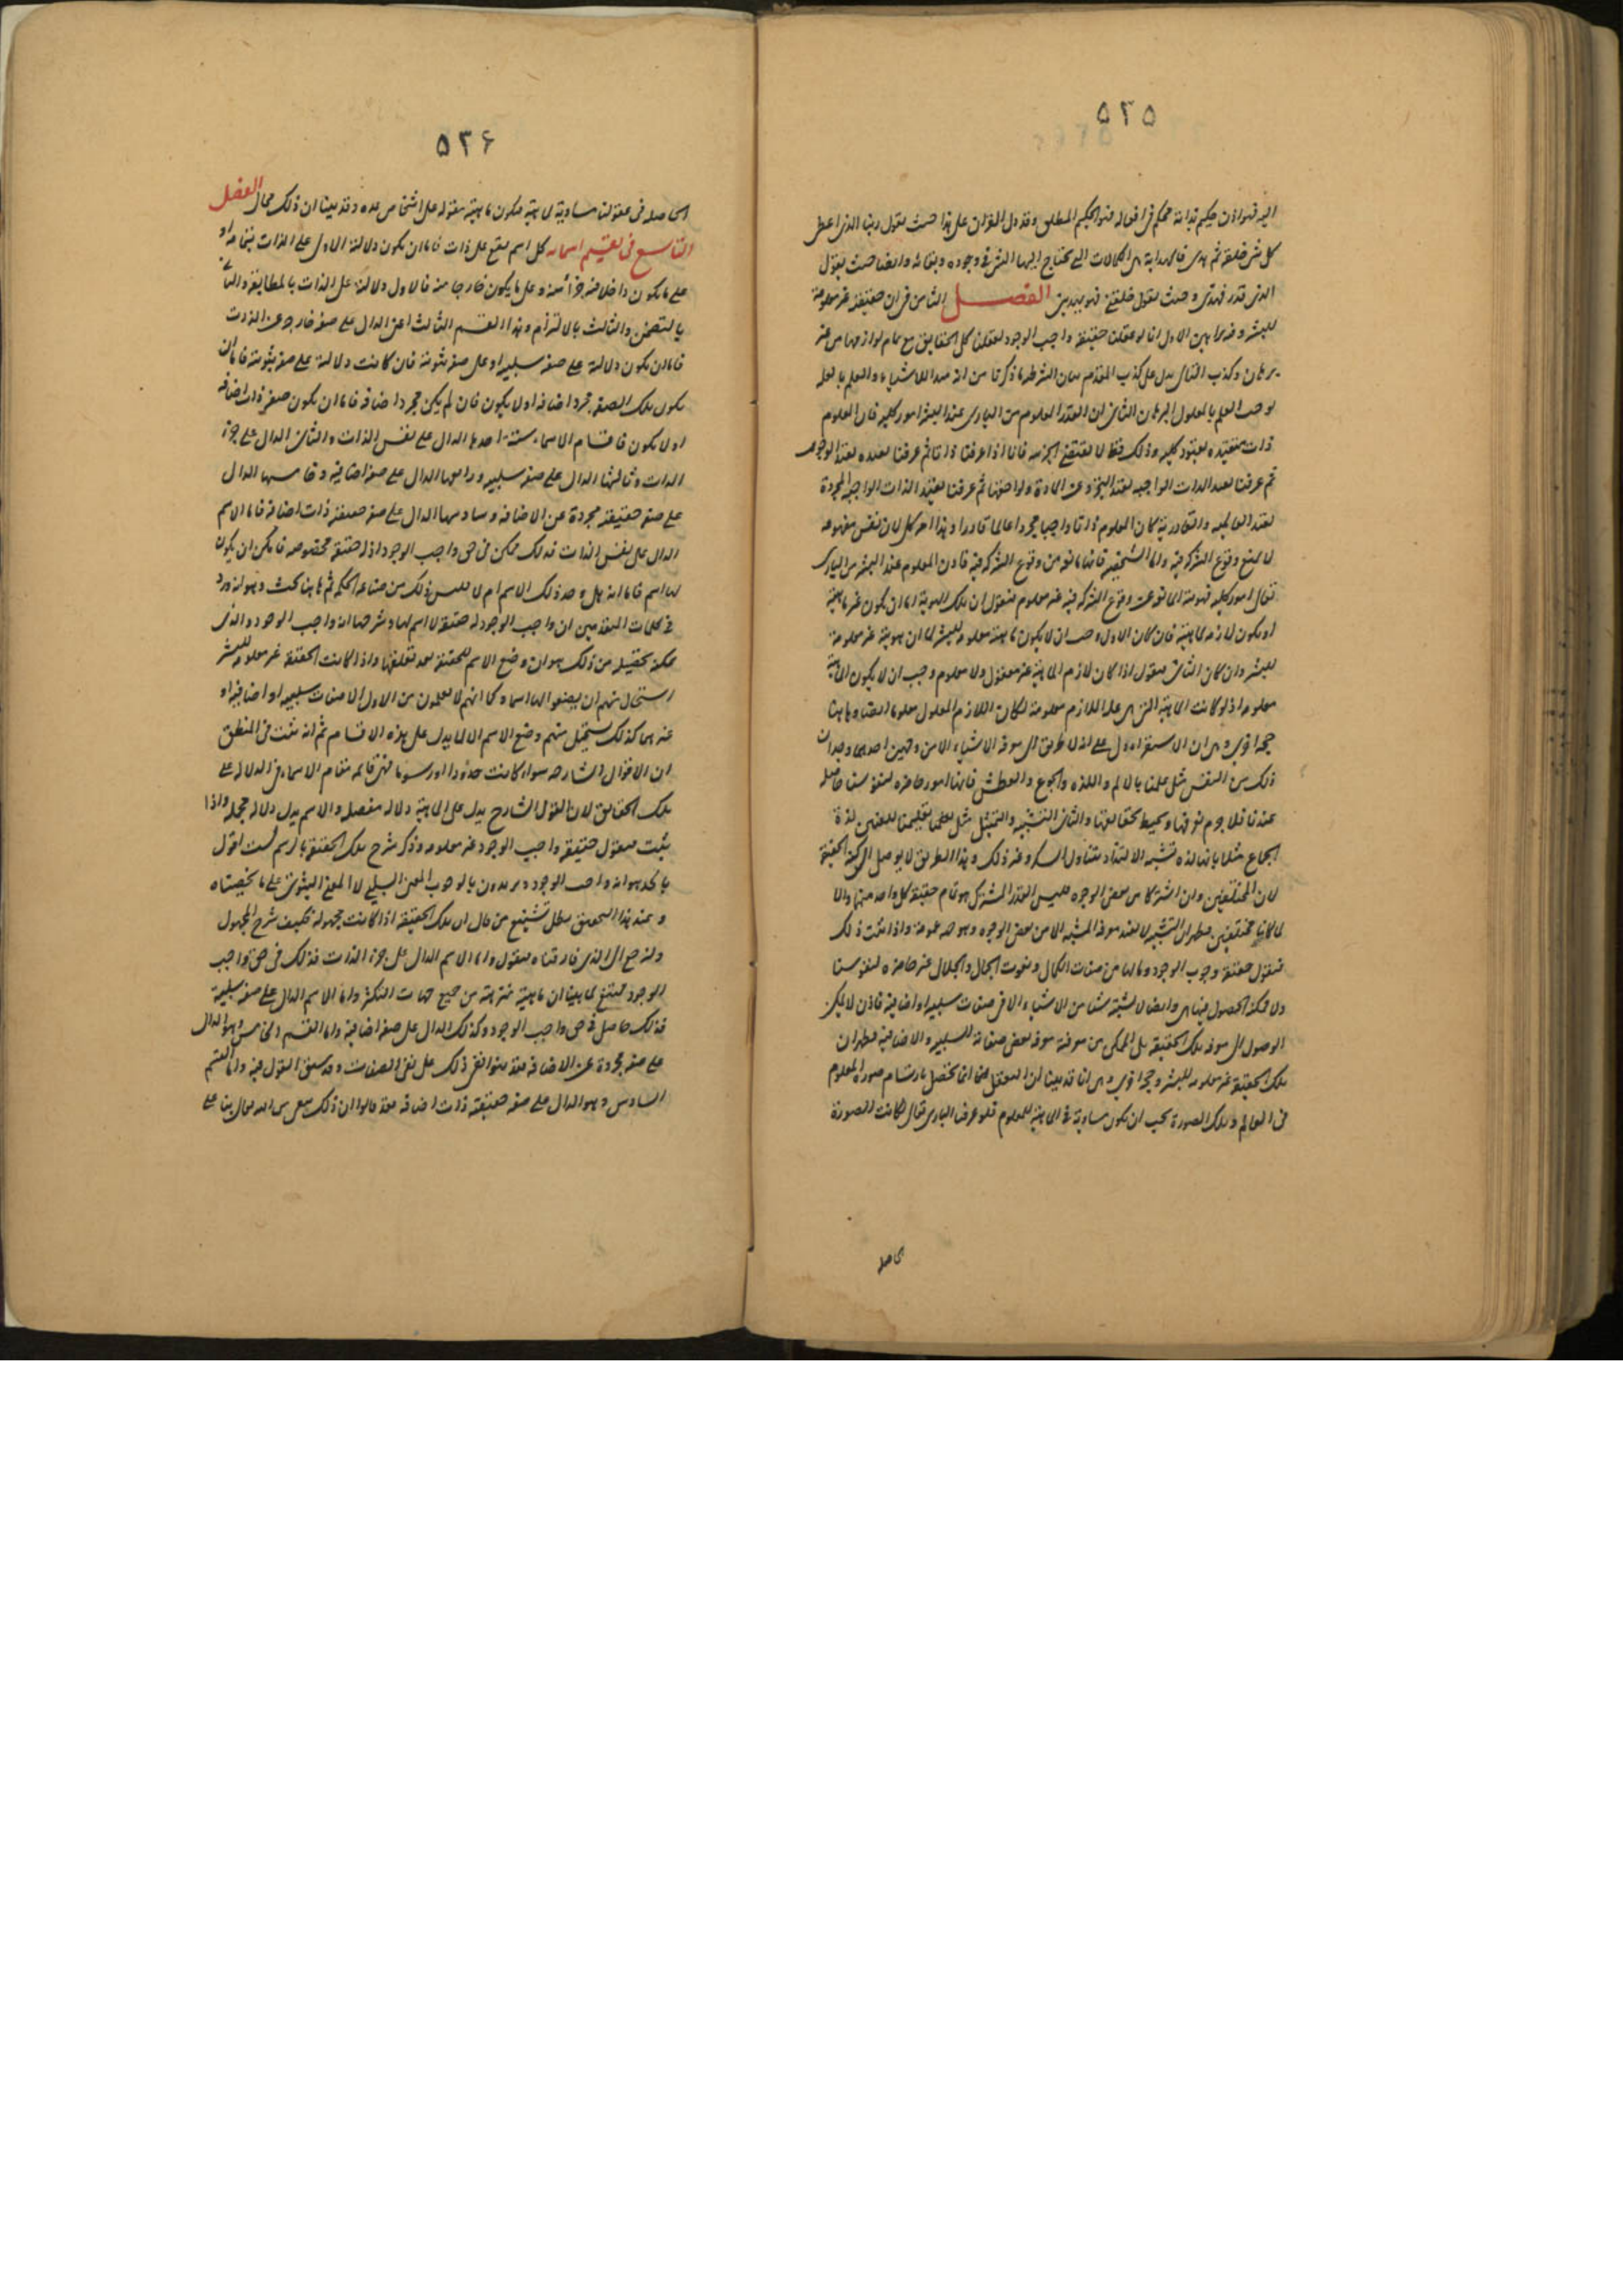 ۵۲۵
اليه فهو اذن حكيم بذاته محكم فى افعاله فهو الحكيم المطلق وقد دل القران على هذا حيث يقول ربنا الذى اعطى
كل شى خلقه ثم هدى فالهداية هى الكمالات التى يحتاج اليها الشى فى وجوده وبقائه وايضا حيث يقول
الذى قدر فهدى وحيث يقول خلقنى فهو يهدين الفصل الثامن فى ان حقيقته غير معلومة
للبشر وفيه براهين الاول انا لو عقلنا حقيقة واجب الوجود لعقلنا كل الحقايق مع تمام لوازمها من غير
برهان وكذب التالى يدل على كذب المقدم بيان الشرطية ما ذكرنا من انه مبدا للاشياء والعلم بالعلة
يوجب العلم بالمعلول البرهان الثانى ان القدر المعلوم من البارى عند البشر امور كلية فان المعلوم
ذات مقيده بقيود كليه وذلك فقط لا يقتضى الجزئية فانا اذا عرفنا ذاتا ثم عرفنا تقيده بقيد الوجوب
ثم عرفنا تقيد الذات الواجبه بقيد التجرد عن المادة ولواحقها ثم عرفنا تقيد الذات الواجبة المجردة
بقيد العالمية والقادرية كان المعلوم ذاتا واجبا مجردا عالما قادرا وهذا امر كلى لان نفس مفهومه
لا يمنع وقوع الشركة فيه واما الشخصية فانها مانعه من وقوع الشركة فيه فاذن المعلوم عند البشر من البارى
تعالى امور كليه فهويته المانعة عن وقوع الشركة فيه غير معلوم فنقول ان تلك الهوية اما ان يكون غير ماهية
او يكون لازمه لماهية فان كان الاول وجب ان لا يكون ماهيته معلومه للبشر لما ان هويته غير معلومة
للبشر وان كان الثانى فنقول اذا كان لازم الماهية غير معقول ولا معلوم وجب ان لا يكون الماهية
معلومه اذ لو كانت الماهية التى هى علة اللازم معلومة لكان اللازم المعلول معلوما ايضا وهاهنا
حجة اخرى وهى ان الاستقراء دل على انه لا طريق الى معرفة الاشياء الا من وجهين احدهما وجدان
ذلك من النفس مثل علمنا بالالم واللذه والجوع والعطش فانها امور حاضره لنفوسنا حاصله
عندنا فلا جرم نعرفها ونحيط بحقايقها والثانى التشبيه والتمثيل مثل تعليمنا للعنين لذة
الجماع مثلا بانها لذه تشبه الالتذاذ بتناول السكر وغير ذلك وهذا الطريق لا يوصل الى كنه الحقيقة
لان المختلفين وان اشتركا من بعض الوجوه فليس القدر المشترك هو تمام حقيقة كل واحد منهما والا
لما كانا مختلفين فظهر ان التشبيه لا يفيد معرفة المشبه الا من بعض الوجوه وهو جهة عمومه واذا ثبت ذلك
فنقول حقيقة وجوب الوجود وما لها من صفات الكمال ونعوت الجمال والجلال غير حاضره لنفوسنا
ولا ممكنة الحصول فيها وايضا لا شبيه شيئا من الاشياء الا فى صفات سلبيه او اضافية فاذن لا يمكن
الوصول الى معرفة تلك الحقيقة بل الممكن من معرفته معرفة بعض صفاته السلبيه والاضافية فظهر ان
تلك الحقيقة غير معلومه للبشر وحجة اخرى وهى انا قد بينا ان التعقل منا انما يحصل بارتسام صورة المعلوم
فى العالم وتلك الصورة يجب ان يكون مساوية فى الماهية للمعلوم فلو عرفنا البارى تعالى لكانت الصورة
الحاصله
۵۲۶
الحاصله فى عقولنا مساوية لماهيته فيكون ماهيته مقوله على اشخاص عده وقد بينا ان ذلك محال الفصل
التاسع فى تقسيم اسمائه كل اسم يقع على ذات فاما ان يكون دلالته الاولى على الذات بتمامه او
على ما يكون داخلا فيه جزأ منه وعلى ما يكون خارجا منه فالاول دلالة على الذات بالمطابقة والثانى
بالتضمن والثالث بالالتزام وهذا القسم الثالث اعنى الدال على صفة خارجة عن الذات
فاما ان يكون دلالته على صفة سلبيه او على صفة ثبوتيه فان كانت دلالته على صفة ثبوتية فاما ان
يكون تلك الصفة مجرد اضافه او لا يكون فان لم يكن مجرد اضافة فاما ان يكون صفة ذات اضافة
او لا يكون فاقسام الاسماء ستة احدها الدال على نفس الذات والثانى الدال على جزء
الذات وثالثها الدال على صفة سلبيه ورابعها الدال على صفة اضافية وخامسها الدال
على صفة حقيقية مجردة عن الاضافه وسادسها الدال على صفة حقيقية ذات اضافة فاما الاسم
الدال على نفس الذات فذلك ممكن فى حق واجب الوجود اذ له حقيقة مخصوصه فامكن ان يكون
لها اسم فاما انه هل وجد ذلك الاسم ام لا فليس ذلك من صناعه الحكيم ثم هاهنا بحث وهو انه ورد
فى كلمات المتقدمين ان واجب الوجود له حقيقة لا اسم لها وشرحها انه واجب الوجود والذى
يمكن تحقيقه من ذلك هو ان وضع الاسم للحقيقة بعد تعقلها واذا كانت الحقيقة غير معلومه للبشر
استحال منهم ان يضعوا لها اسما وكما انهم لا يعلمون من الاول الا صفات سلبيه او اضافيه او
غيرهما كذلك يستحيل منهم وضع الاسم الا لما يدل على هذه الاقسام ثم انه ثبت فى المنطق
ان الاقوال الشارحه سواء كانت حدودا او رسوما فهى قايمه مقام الاسماء فى الدلاله على
تلك الحقايق لان القول الشارح يدل على الماهية دلاله مفصله والاسم يدل دلاله مجمله واذا
ثبت فنقول حقيقة واجب الوجود غير معلومه وذكر شرح تلك الحقيقة بالرسم لست اقول
بالحد هو انه واجب الوجود ويريدون بالوجوب المعنى السلبى لا المعنى الثبوتى على ما لخصناه
وعند هذا التحقيق بطل تشنيع من قال ان تلك الحقيقة اذا كانت مجهولة فكيف شرح المجهول
ولنرجع الى الذى فارقناه فنقول واما الاسم الدال على جزء الذات فذلك فى حق واجب
الوجود ممتنع لما بينا ان ماهيته منزهة من جميع جهات التكثر واما الاسم الدال على صفة سلبية
فذلك حاصل فى حق واجب الوجود وكذلك الدال على صفة اضافية واما القسم الخامس وهو الدال
على صفة مجردة عن الاضافه فقد منعوا نفى ذلك على نفى الصفات وقد سبق القول فيه واما القسم
السادس وهو الدال على صفة حقيقية ذات اضافه فقد قالوا ان ذلك على